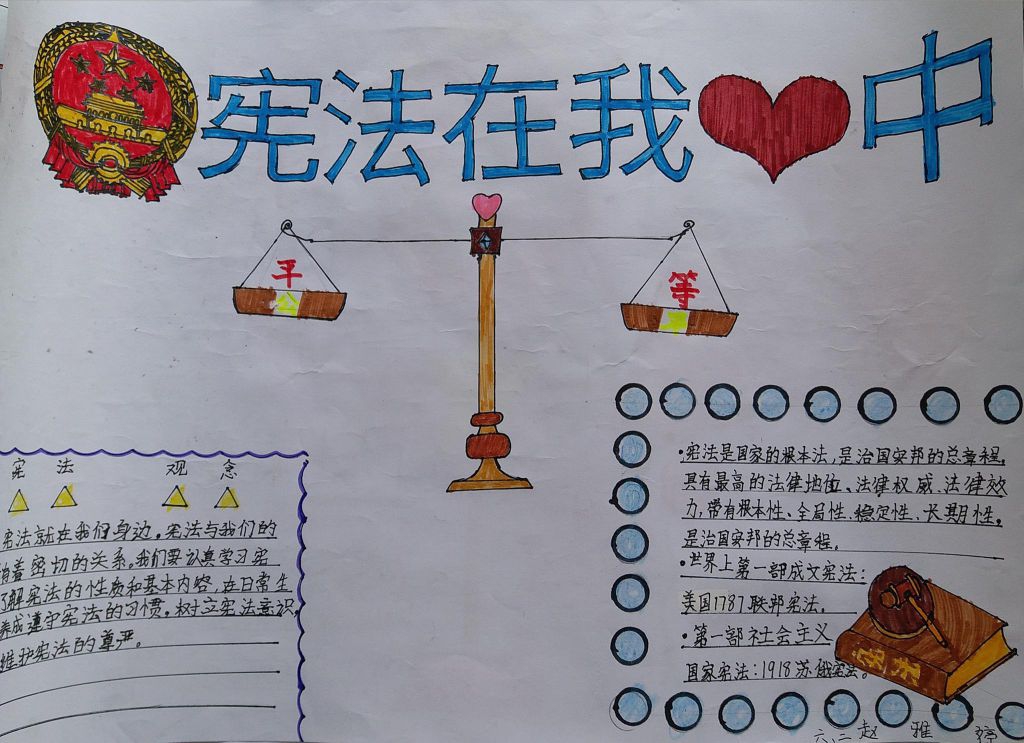 宪法在我中
平 等
公 正
宪 法 观 念
宪法就在我们身边。宪法与我们的
有着密切的关系。我们要认真学习宪
了解宪法的性质和基本内容，在日常生
养成遵守宪法的习惯。树立宪法意识
维护宪法的尊严。
·宪法是国家的根本法，是治国安邦的总章程，
具有最高的法律地位、法律权威、法律效
力，带有根本性、全局性、稳定性、长期性。
是治国安邦的总章程。
·世界上第一部成文宪法：
美国1787联邦宪法。
·第一部社会主义
国家宪法：1918苏俄宪法。
宪法
六、二 赵 雅 婷